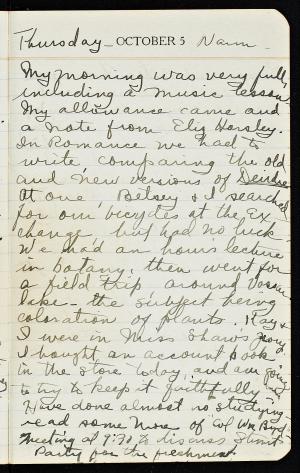 Thursday - OCTOBER 5 Warm -
My morning was very full,
including a music lesson.
My allowance came and
a note from Eliz Horsley.
In Romance we had to
write, comparing the old
and new versions of Deirdre
At one, Betsey & I searched
for our bicycles at the Ex-
change, but had no luck.
We had an hour's lecture
in botany, then went for
a field trip around
lake - the subject being
coloration of plants. Kay &
I were in Miss Shaw's group.
I bought an account book
in the store today, and am going
to try to keep it faithfully.
Have done almost no studying -
read some more of Col Wm Byrd -
Meeting at 9:30 to discuss Stunt
Party for the freshmen.